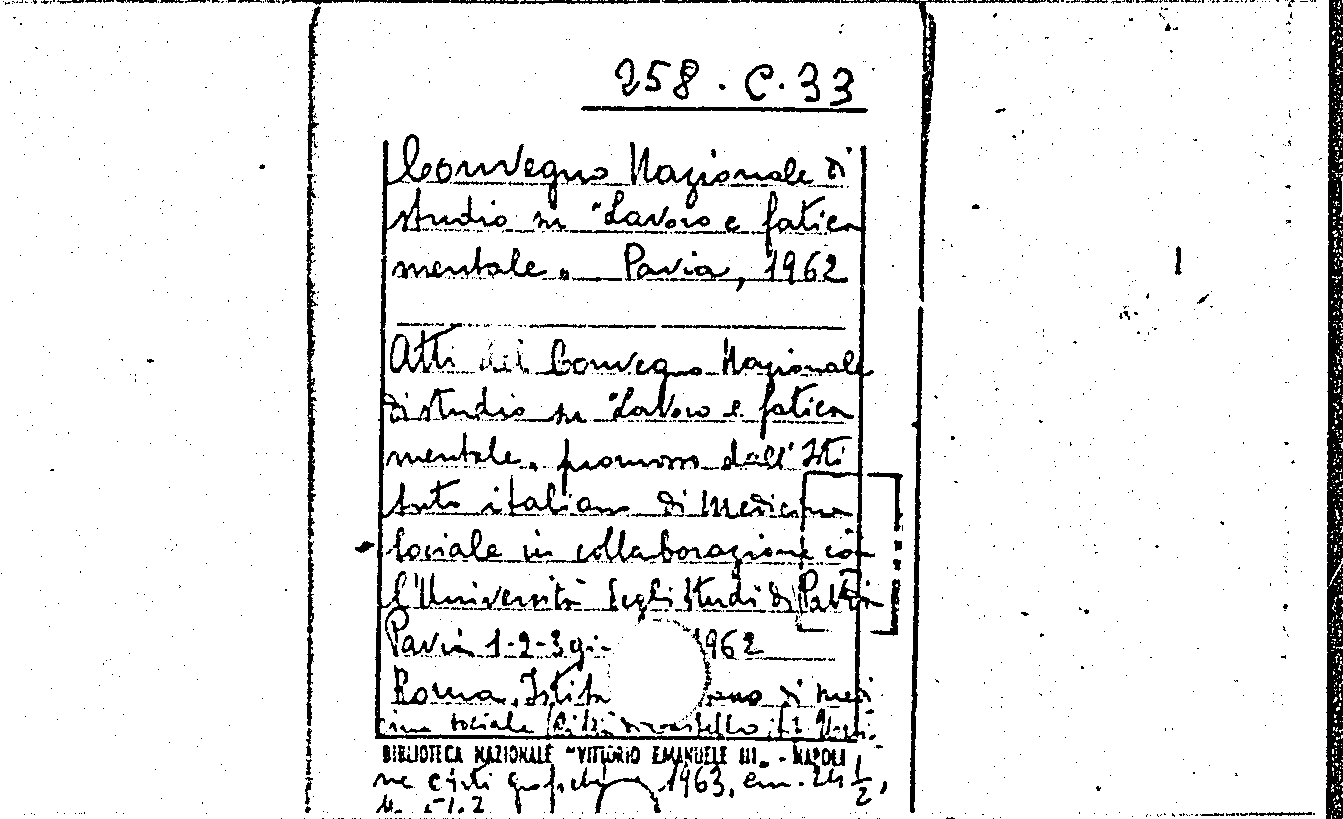 258.C.33
Convegno Nazionale di
studio su "Lavoro e fatica
mentale„ Pavia, 1962
Atti del Convegno Nazionale
di studio su "Lavoro e fatica
mentale„ promosso dall'Isti
tuto italiano di Medicina
sociale in collaborazione con
l'Università degli Studi di Pavia
Pavia 1-2-3 gi 1962
Roma, Istitu iano di medi
cina sociale
BIBLIOTECA NAZIONALE "VITTORIO EMANUELE III„ - NAPOLI
1963, cm. 24 1/2,